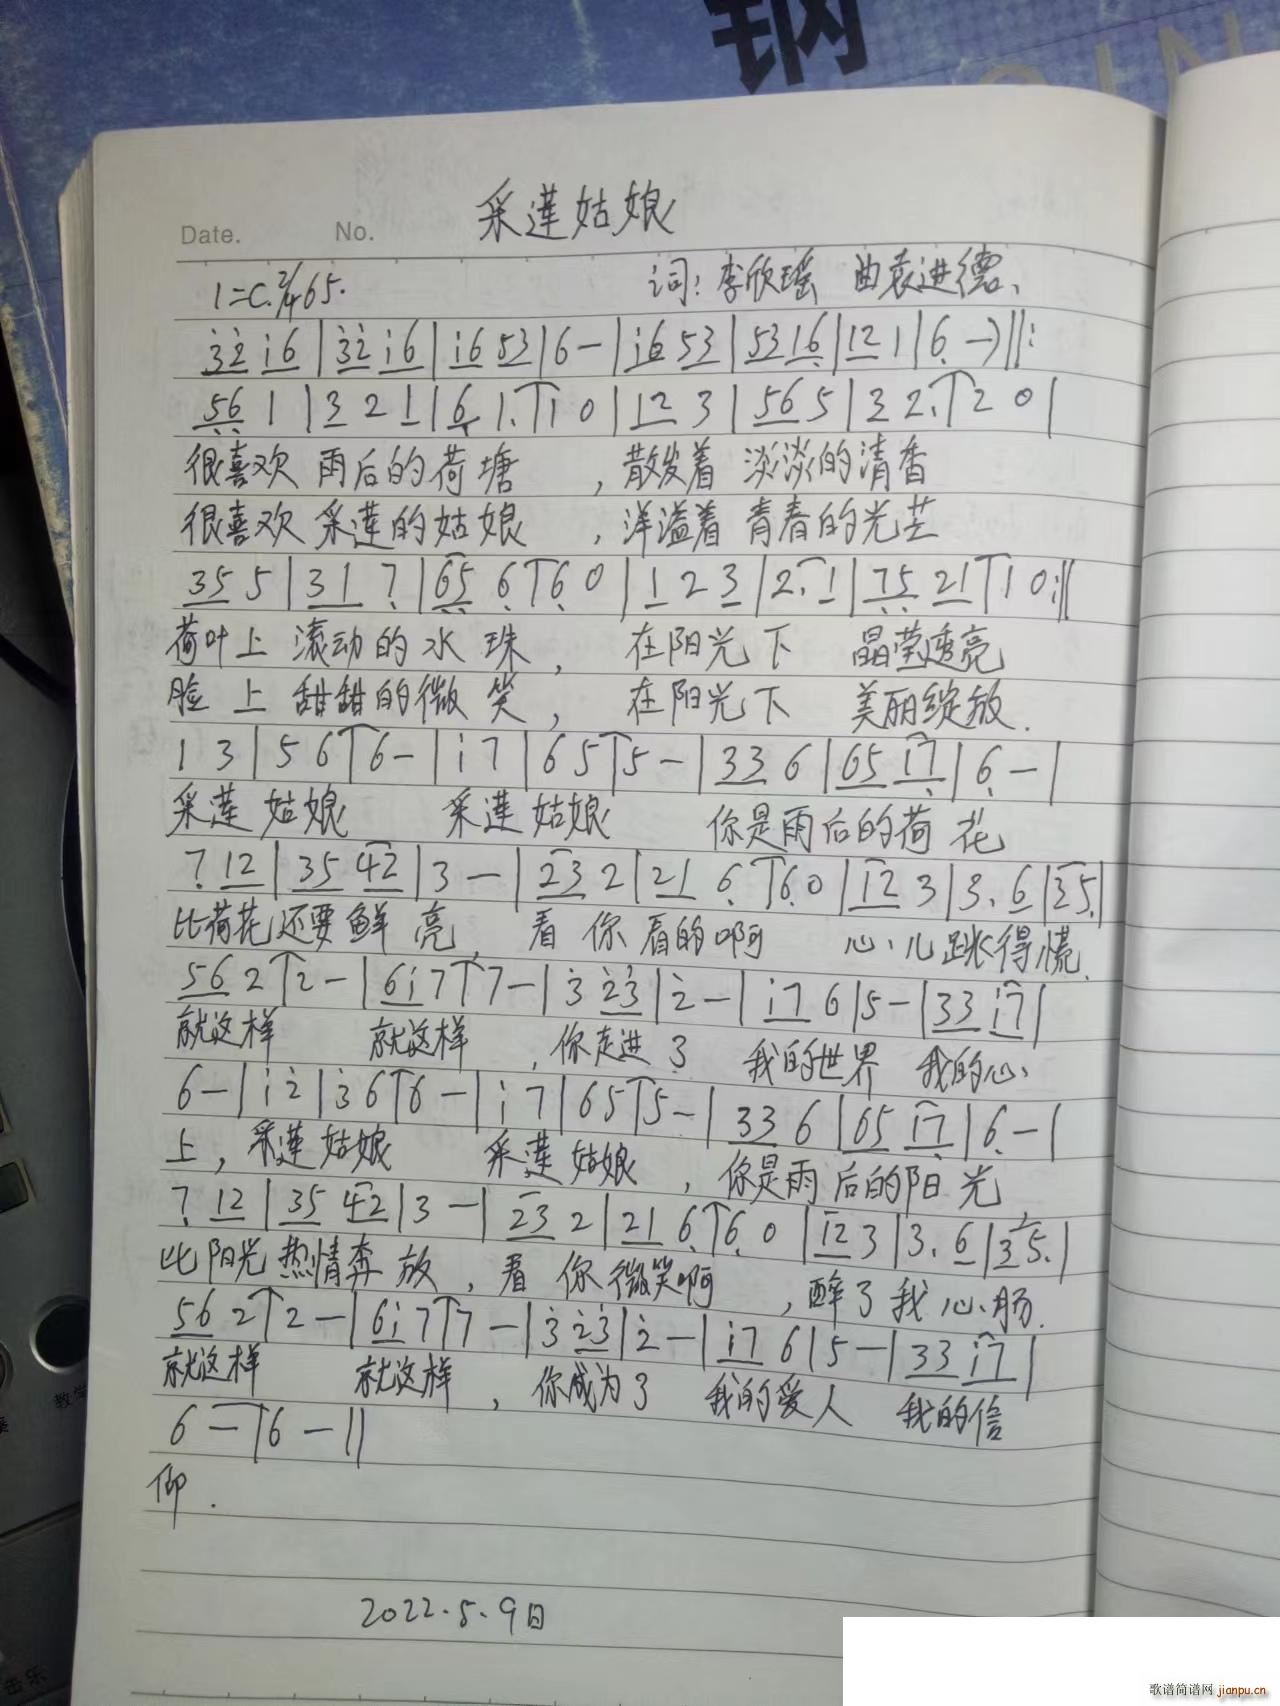 钢
Date. No. 采莲姑娘
1=C 2/4 65. 词:李欣瑶 曲袁进德、
3̇2̇ i6 | 3̇2̇ i6 | i6 53 | 6 — | i6 53 | 53 16 | 12 1 | 6 —) ||:
56 1 | 3 2 1 | 6 1. | 1 0 | 12 3 | 56 5 | 3 2. | 2 0 |
很喜欢 雨后的荷塘 ,散发着 淡淡的清香
很喜欢 采莲的姑娘 ,洋溢着 青春的光芒
35 5 | 31 7 | 65 6 | 6 0 | 1 2 3 | 2. 1 | 75 21 | 1 0 :||
荷叶上 滚动的水珠, 在阳光下 晶莹透亮
脸上 甜甜的微笑, 在阳光下 美丽绽放.
1 3 | 5 6 | 6 — | i 7 | 6 5 | 5 — | 33 6 | 65 i7 | 6 — |
采莲姑娘 采莲姑娘 你是雨后的荷花
7 12 | 35 42 | 3 — | 23 2 | 21 6 | 6 0 | 12 3 | 3. 6 | 35. |
比荷花还要鲜亮, 看你看的啊 心儿跳得慌.
56 2 | 2 — | 6i 7 | 7 — | 3̇ 2̇3̇ | 2̇ — | i7 6 | 5 — | 33 i7 |
就这样 就这样 ,你走进了 我的世界 我的心
6 — | i 2̇ | 3̇ 6 | 6 — | i 7 | 65 | 5 — | 33 6 | 65 i7 | 6 — |
上,采莲姑娘 采莲姑娘 ,你是雨后的阳光
7 12 | 35 42 | 3 — | 23 2 | 21 6 | 6 0 | 12 3 | 3. 6 | 35. |
比阳光热情奔放,看你微笑啊 ,醉了我心肠.
56 2 | 2 — | 6i 7 | 7 — | 3̇ 2̇3̇ | 2̇ — | i7 6 | 5 — | 33 i7 |
就这样 就这样 ,你成为了 我的爱人 我的信
6 — | 6 — ||
仰.
2022.5.9日
歌谱简谱网 jianpu.cn